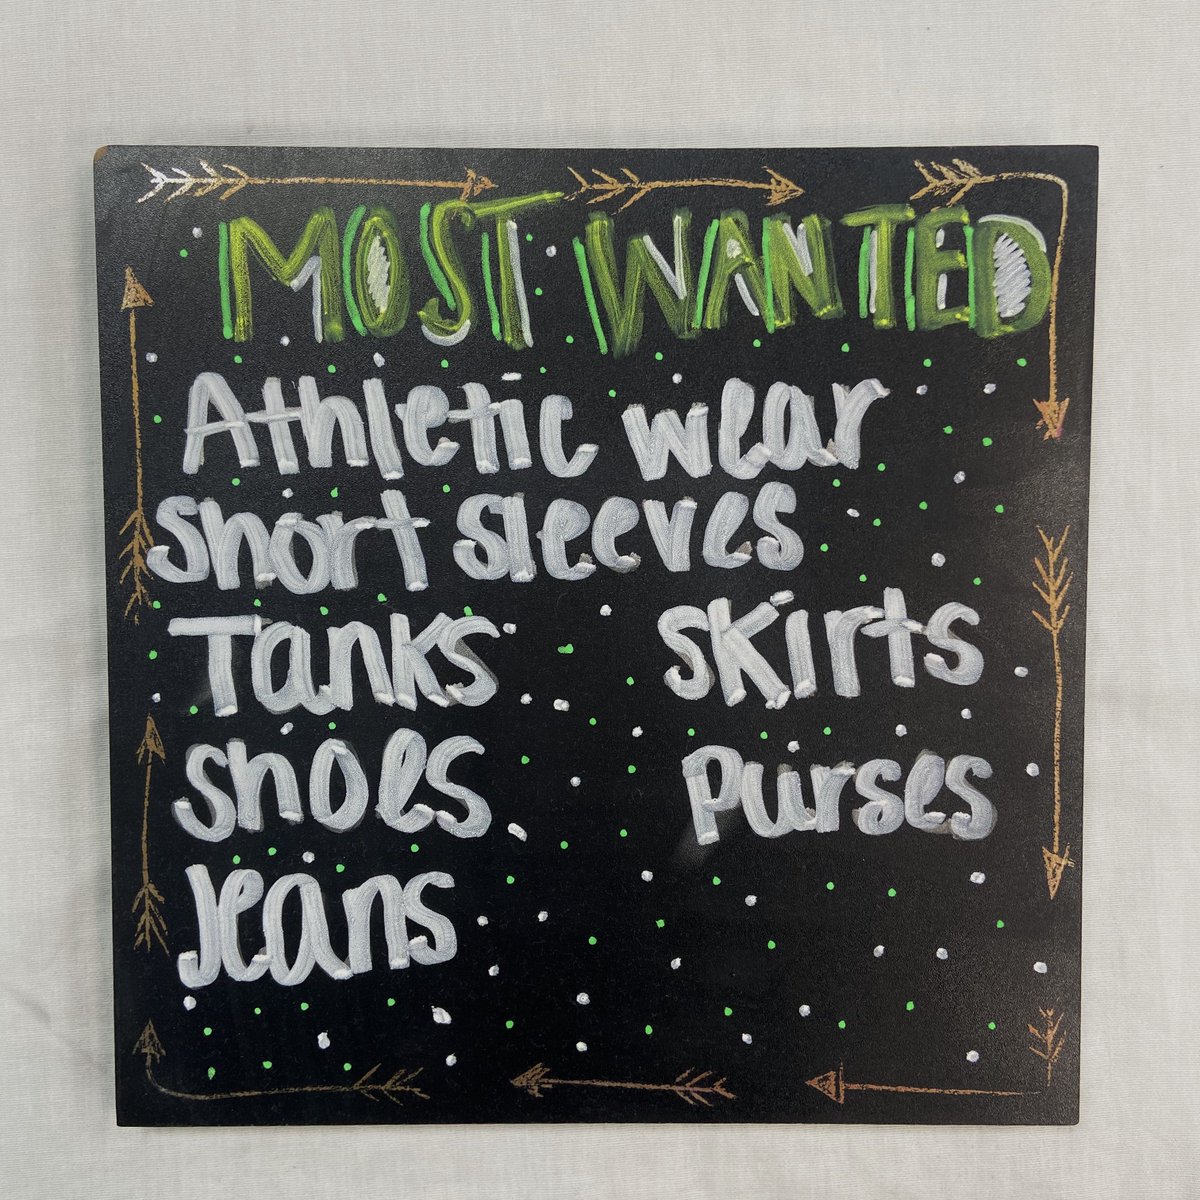 MOST WANTED
Athletic wear
short sleeves
Tanks
skirts
shoes
Purses
Jeans